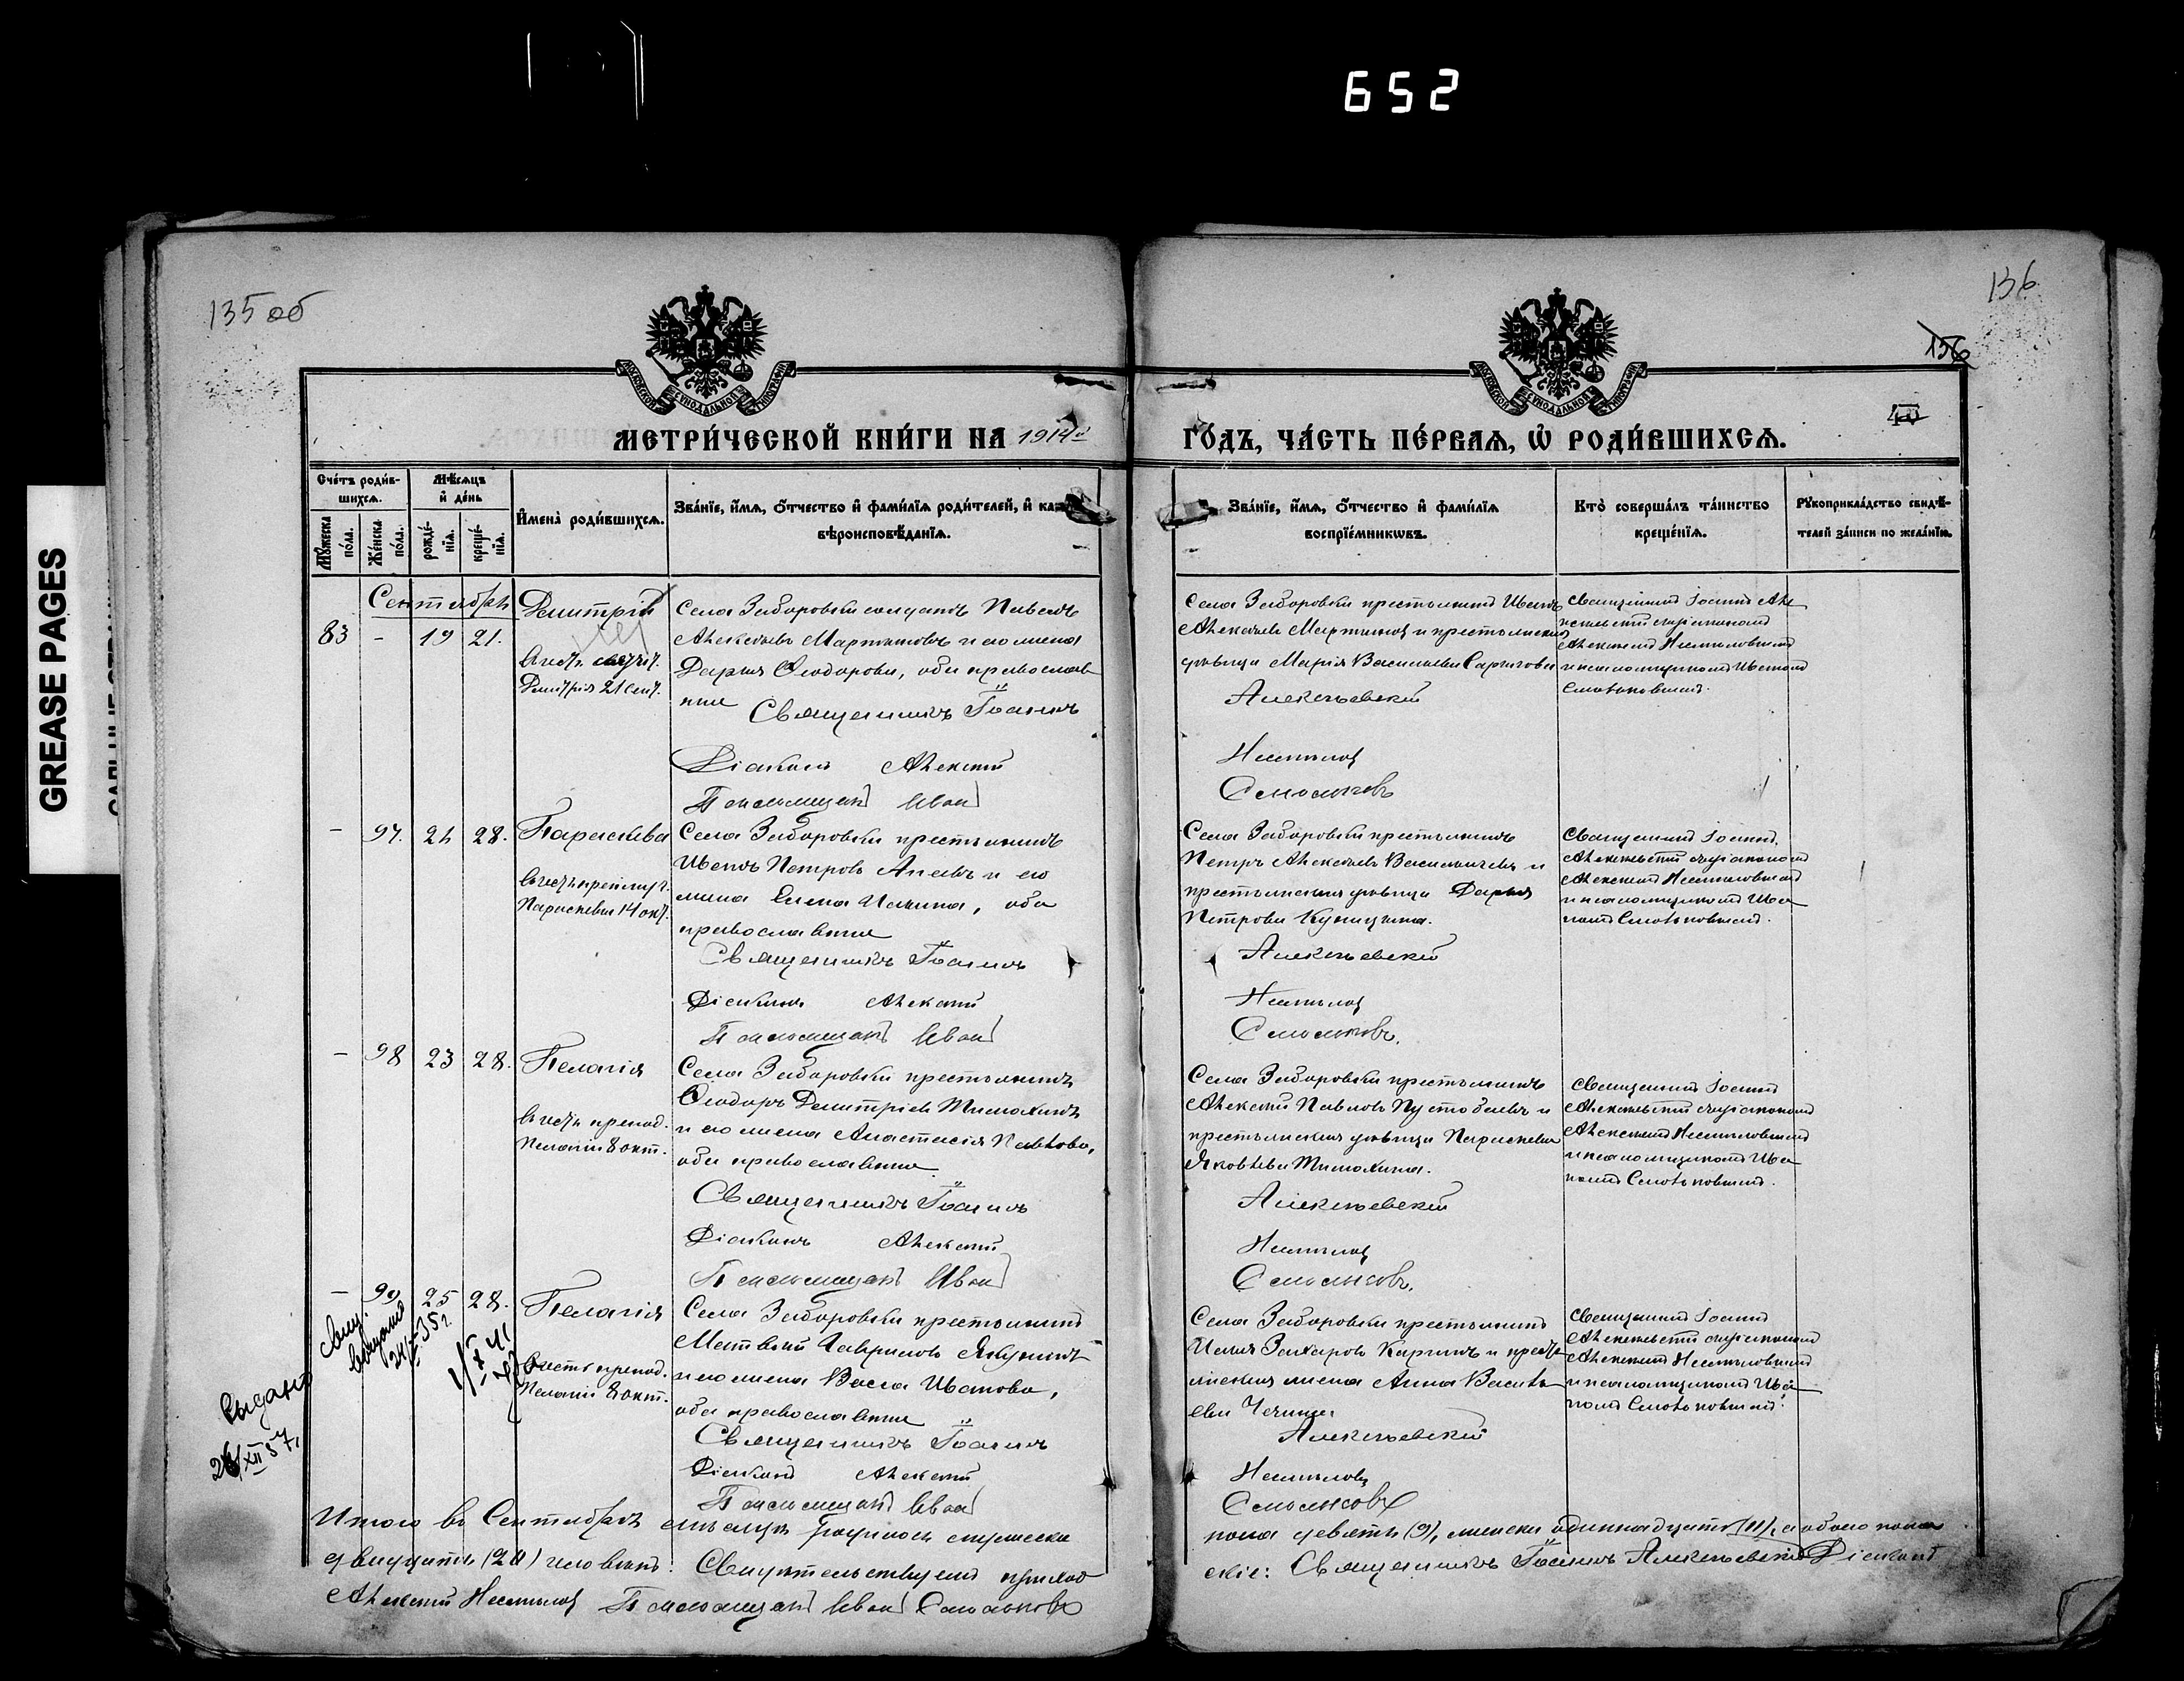 652
GREASE PAGES
135 об
136
156
40
МОСКОВСКОЙ СѴНОДАЛЬНОЙ ТИПОГРАФІИ
МОСКОВСКОЙ СѴНОДАЛЬНОЙ ТИПОГРАФІИ
МЕТРИ́ЧЕСКОЙ КНИ́ГИ НА 1914й
ГО́ДЪ, ЧА́СТЬ ПЕ́РВАѦ, Ѡ҆ РОДИ́ВШИХСѦ.
Сче́тъ роди́в-
шихсѧ.
Мѣ́сѧцъ
и҆ де́нь
Мꙋ́жеска
по́ла.
Же́нска
по́ла.
рожде́-
нїѧ.
креще́-
нїѧ.
И҆мена̀ роди́вшихсѧ.
Зва́нїе, и҆́мѧ, ѻ҆́тчество и҆ фами́лїѧ роди́телей, и҆
вѣроисповѣ́данїѧ.
Зва́нїе, и҆́мѧ, ѻ҆́тчество и҆ фами́лїѧ
воспрїе́мникѡвъ.
Кто̀ соверша́лъ та́инство
креще́нїѧ.
Рꙋкоприкла́дство свидѣ́-
телей за́писи по жела́нїю.
Сентября
83 - 19 21.
Димитрій
въ честь святит.
Димитрія 21 сент.
Села Заборовки солдатъ Павелъ
Алексѣевъ Мартыновъ и его жена
Дарья Ѳеодорова, оба православ
ные
Священникъ Іоаннъ
Діаконъ Алексій
Псаломщикъ Иван
Села Заборовки крестьянинъ Иванъ
Алексѣевъ Мартыновъ и крестьянская
дѣвица Марія Васильева
Алексѣевскій
Несмѣловъ
Смольковъ
Священникъ Іоаннъ Але
ксѣевскій съ діакономъ
Алексіемъ Несмѣловымъ
и псаломщикомъ Иваномъ
Смольковымъ.
- 97. 21 28.
Параскева
въ честь препмуч.
Параскевы 14 окт.
Села Заборовки крестьянинъ
Иванъ Петровъ и его
жена Елена Ильина, оба
православные
Священникъ Іоаннъ
Діаконъ Алексій
Псаломщикъ Иван
Села Заборовки крестьянинъ
Петръ Алексѣевъ и
крестьянская дѣвица Дарья
Петрова Куницына.
Алексѣевскій
Несмѣловъ
Смольковъ.
Священникъ Іоаннъ
Алексѣевскій съ діакономъ
Алексіемъ Несмѣловымъ
и псаломщикомъ Ива
номъ Смольковымъ.
- 98 23 28.
Пелагія
въ честь препод.
Пелагіи 8 окт.
Села Заборовки крестьянинъ
Ѳеодоръ Димитріевъ Тимохинъ
и его жена Анастасія Павлова,
оба православные
Священникъ Іоаннъ
Діаконъ Алексій
Псаломщикъ Иван
Села Заборовки крестьянинъ
Алексій Павловъ и
крестьянская дѣвица Параскева
Яковлева Тимохина.
Алексѣевскій
Несмѣловъ
Смольковъ.
Священникъ Іоаннъ
Алексѣевскій съ діакономъ
Алексіемъ Несмѣловымъ
и псаломщикомъ Ива
номъ Смольковымъ.
- 99 25 28.
Пелагія
въ честь препод.
Пелагіи 8 окт.
Выдано
26/XII 57.
Села Заборовки крестьянинъ
Матвей Гавриловъ Якунинъ
и его жена Васса Иванова,
оба православные
Священникъ Іоаннъ
Діаконъ Алексій
Псаломщикъ Иван
Села Заборовки крестьянинъ
Илья Захаровъ Каргинъ и кресть
янская жена Анна Василь
ева
Алексѣевскій
Несмѣловъ
Смольковъ
Священникъ Іоаннъ
Алексѣевскій съ діакономъ
Алексіемъ Несмѣловымъ
и псаломщикомъ Ива
номъ Смольковымъ.
Итого въ Сентябрѣ мѣсяцѣ родилось мужеска
пола девять (9), женска одиннадцать (11), а обоего пола
двадцать (20) человѣкъ. Свидѣтельствуемъ приход
скіе: Священникъ Іоаннъ Алексѣевскій Діаконъ
Алексій Несмѣловъ Псаломщикъ Иван Смольковъ